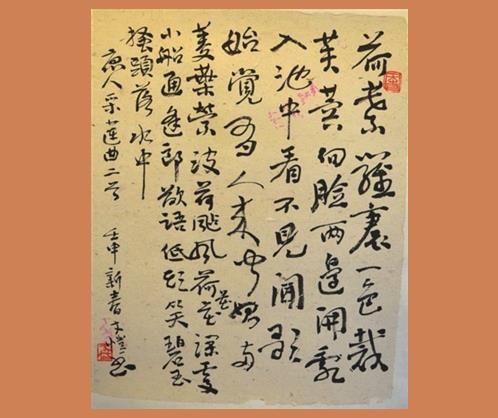 荷葉羅裠一色裁
芙蓉向臉兩邊開亂
入池中看不見聞歌
始覺有人来
菱葉縈波荷颭風荷花深處
小船通逢郎欲語低頭笑碧玉
搔頭落水中
唐人采蓮曲二首 壬申新春